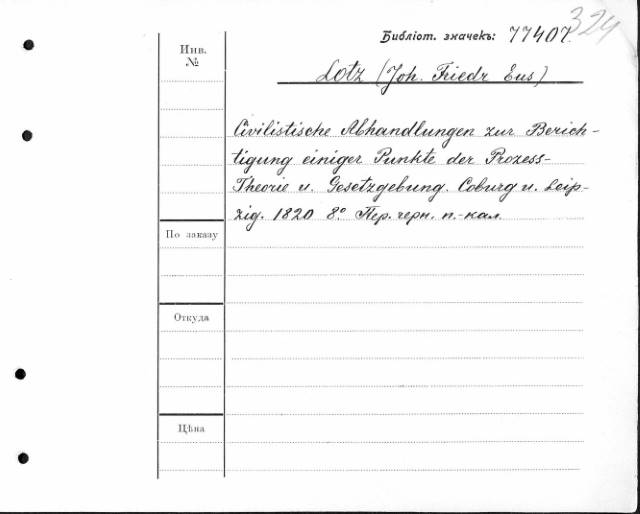 324
Библіот. значекъ: 77407.
Инв.
№
Lotz (Joh. Friedr Eus)
Civilistische Abhandlungen zur Berich-
tigung einiger Punkte der Prozess-
Theorie u. Gesetzgebung. Coburg u. Leip-
zig. 1820 8° Пер. черн. п.-кал.
По заказу
Откуда
Цѣна